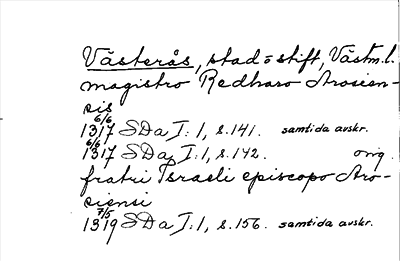 Västerås, stad o stift, Västm. l.
magistro Redharo Arosien-
sis
6/6
1317 SDa I:1, s. 141. samtida avskr.
6/6
1317 SDa I:1, s. 142. orig.
fratri Israeli episcopo Aro-
siensi
7/5
1319 SDa I:1, s. 156. samtida avskr.